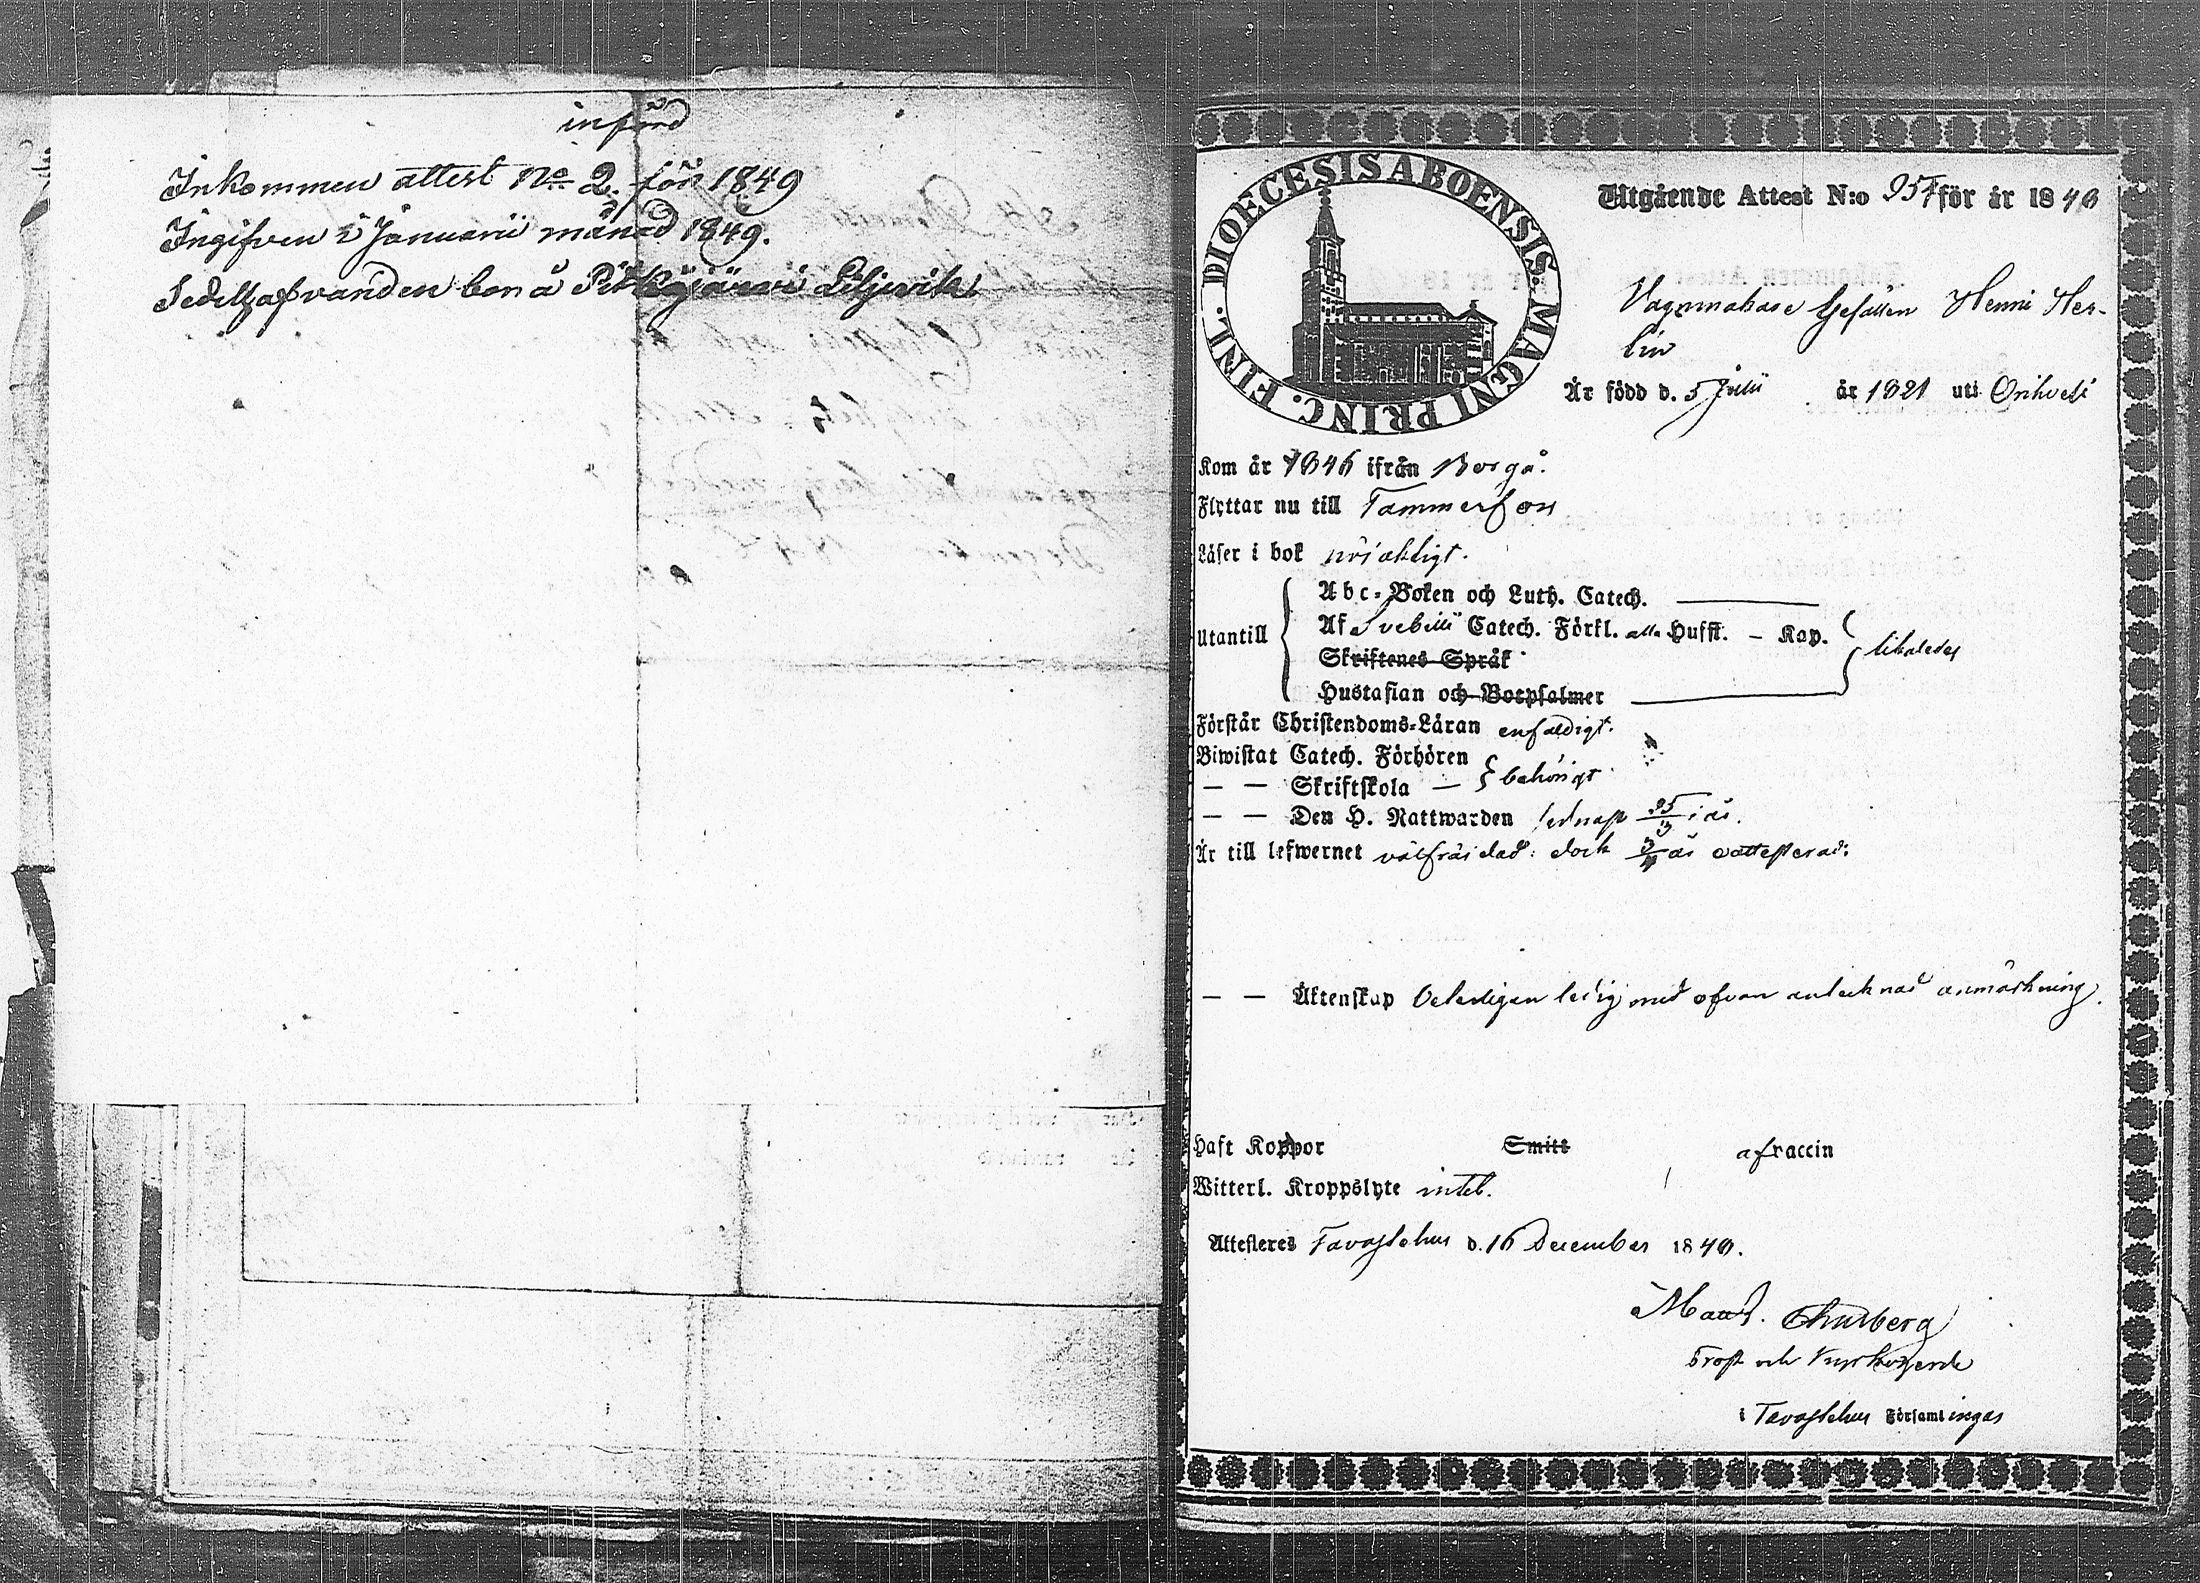 införd
Inkommen attest No 2. för 1849
Ingifven i Januarii månad 1849.
Sedelhafvanden bor å Pitkäjärvi Liljevik.
DIOECESIS ABOENSIS. MAGNI PRINC. FINL.
Utgående Attest N:o för år 1848
Gesällen Henric Her-
lin
Är född d. 5 Julii år 1821 uti Orihvesi
Kom år 1846 ifrån Borgå.
Flyttar nu till Tammerfors
Läser i bok försvarligt.
Abc-Boken och Luth. Catech.
Utantill
Af Svebilii Catech. Förkl. alla Hufst. – Kap.
likaledes
Skriftenes Språk
Hustaflan och Botpsalmer
Förstår Christendoms-Läran enfaldigt.
Biwistat Catech. Förhören
behörigt
— — Skriftskola —
— — Den H. Nattwarden sednast 25/3 i år.
Är till lefwernet välfräjdad: dock år oattesterad:
— — Äktenskap ledig med ofvan antecknad anmärkning.
Haft Koppor Smitt af vaccin
Witterl. Kroppslyte intet.
Attesteres Tavastehus d. 16 December 1848.
Prost och Kyrkoherde
i Tavastehus Församlingar